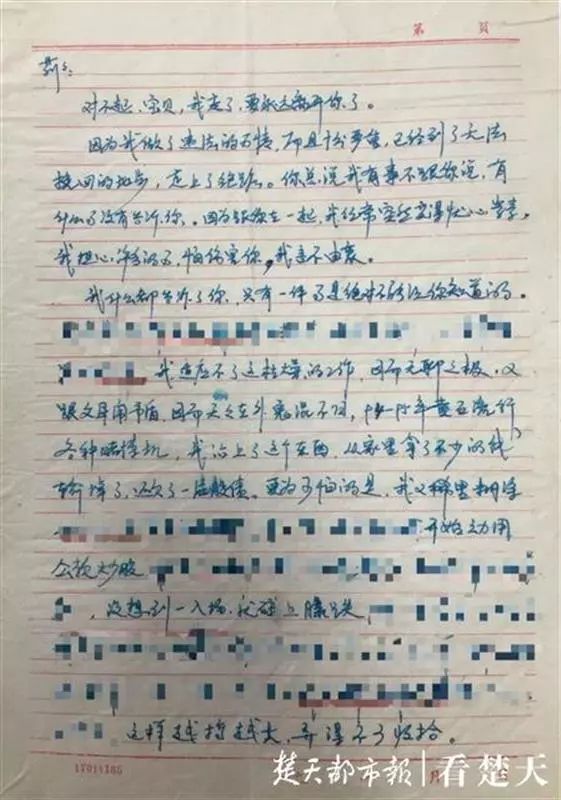 第 頁
对不起,宝贝,我走了,要永远离开你了。
因为我做了违法的事情,而且十分严重,已经到了无法
挽回的地步,走上了绝路。你总说我有事不跟你说,有
什么事没有告诉你。因为跟你在一起,我经常突然变得忧心
我担心 ,怕伤害你,我 不由衷。
我什么都告诉了你,只有一件事是绝对不能让你知道的。
我适应不了这枯燥的工作,因而无聊之极,又
跟父母闹矛盾,因而天天在外 混不回, 年黄石流行
各种赌博机,我沾上了这个东西,从家里拿了不少的钱
输掉了,还欠了一屁股债。更为可怕的是,我又稀里糊涂
开始动用
公款炒股
,没想到一入场,就碰上膝跌
这样越搞越大,弄得不可收拾。
17011185
楚天都市報 看楚天